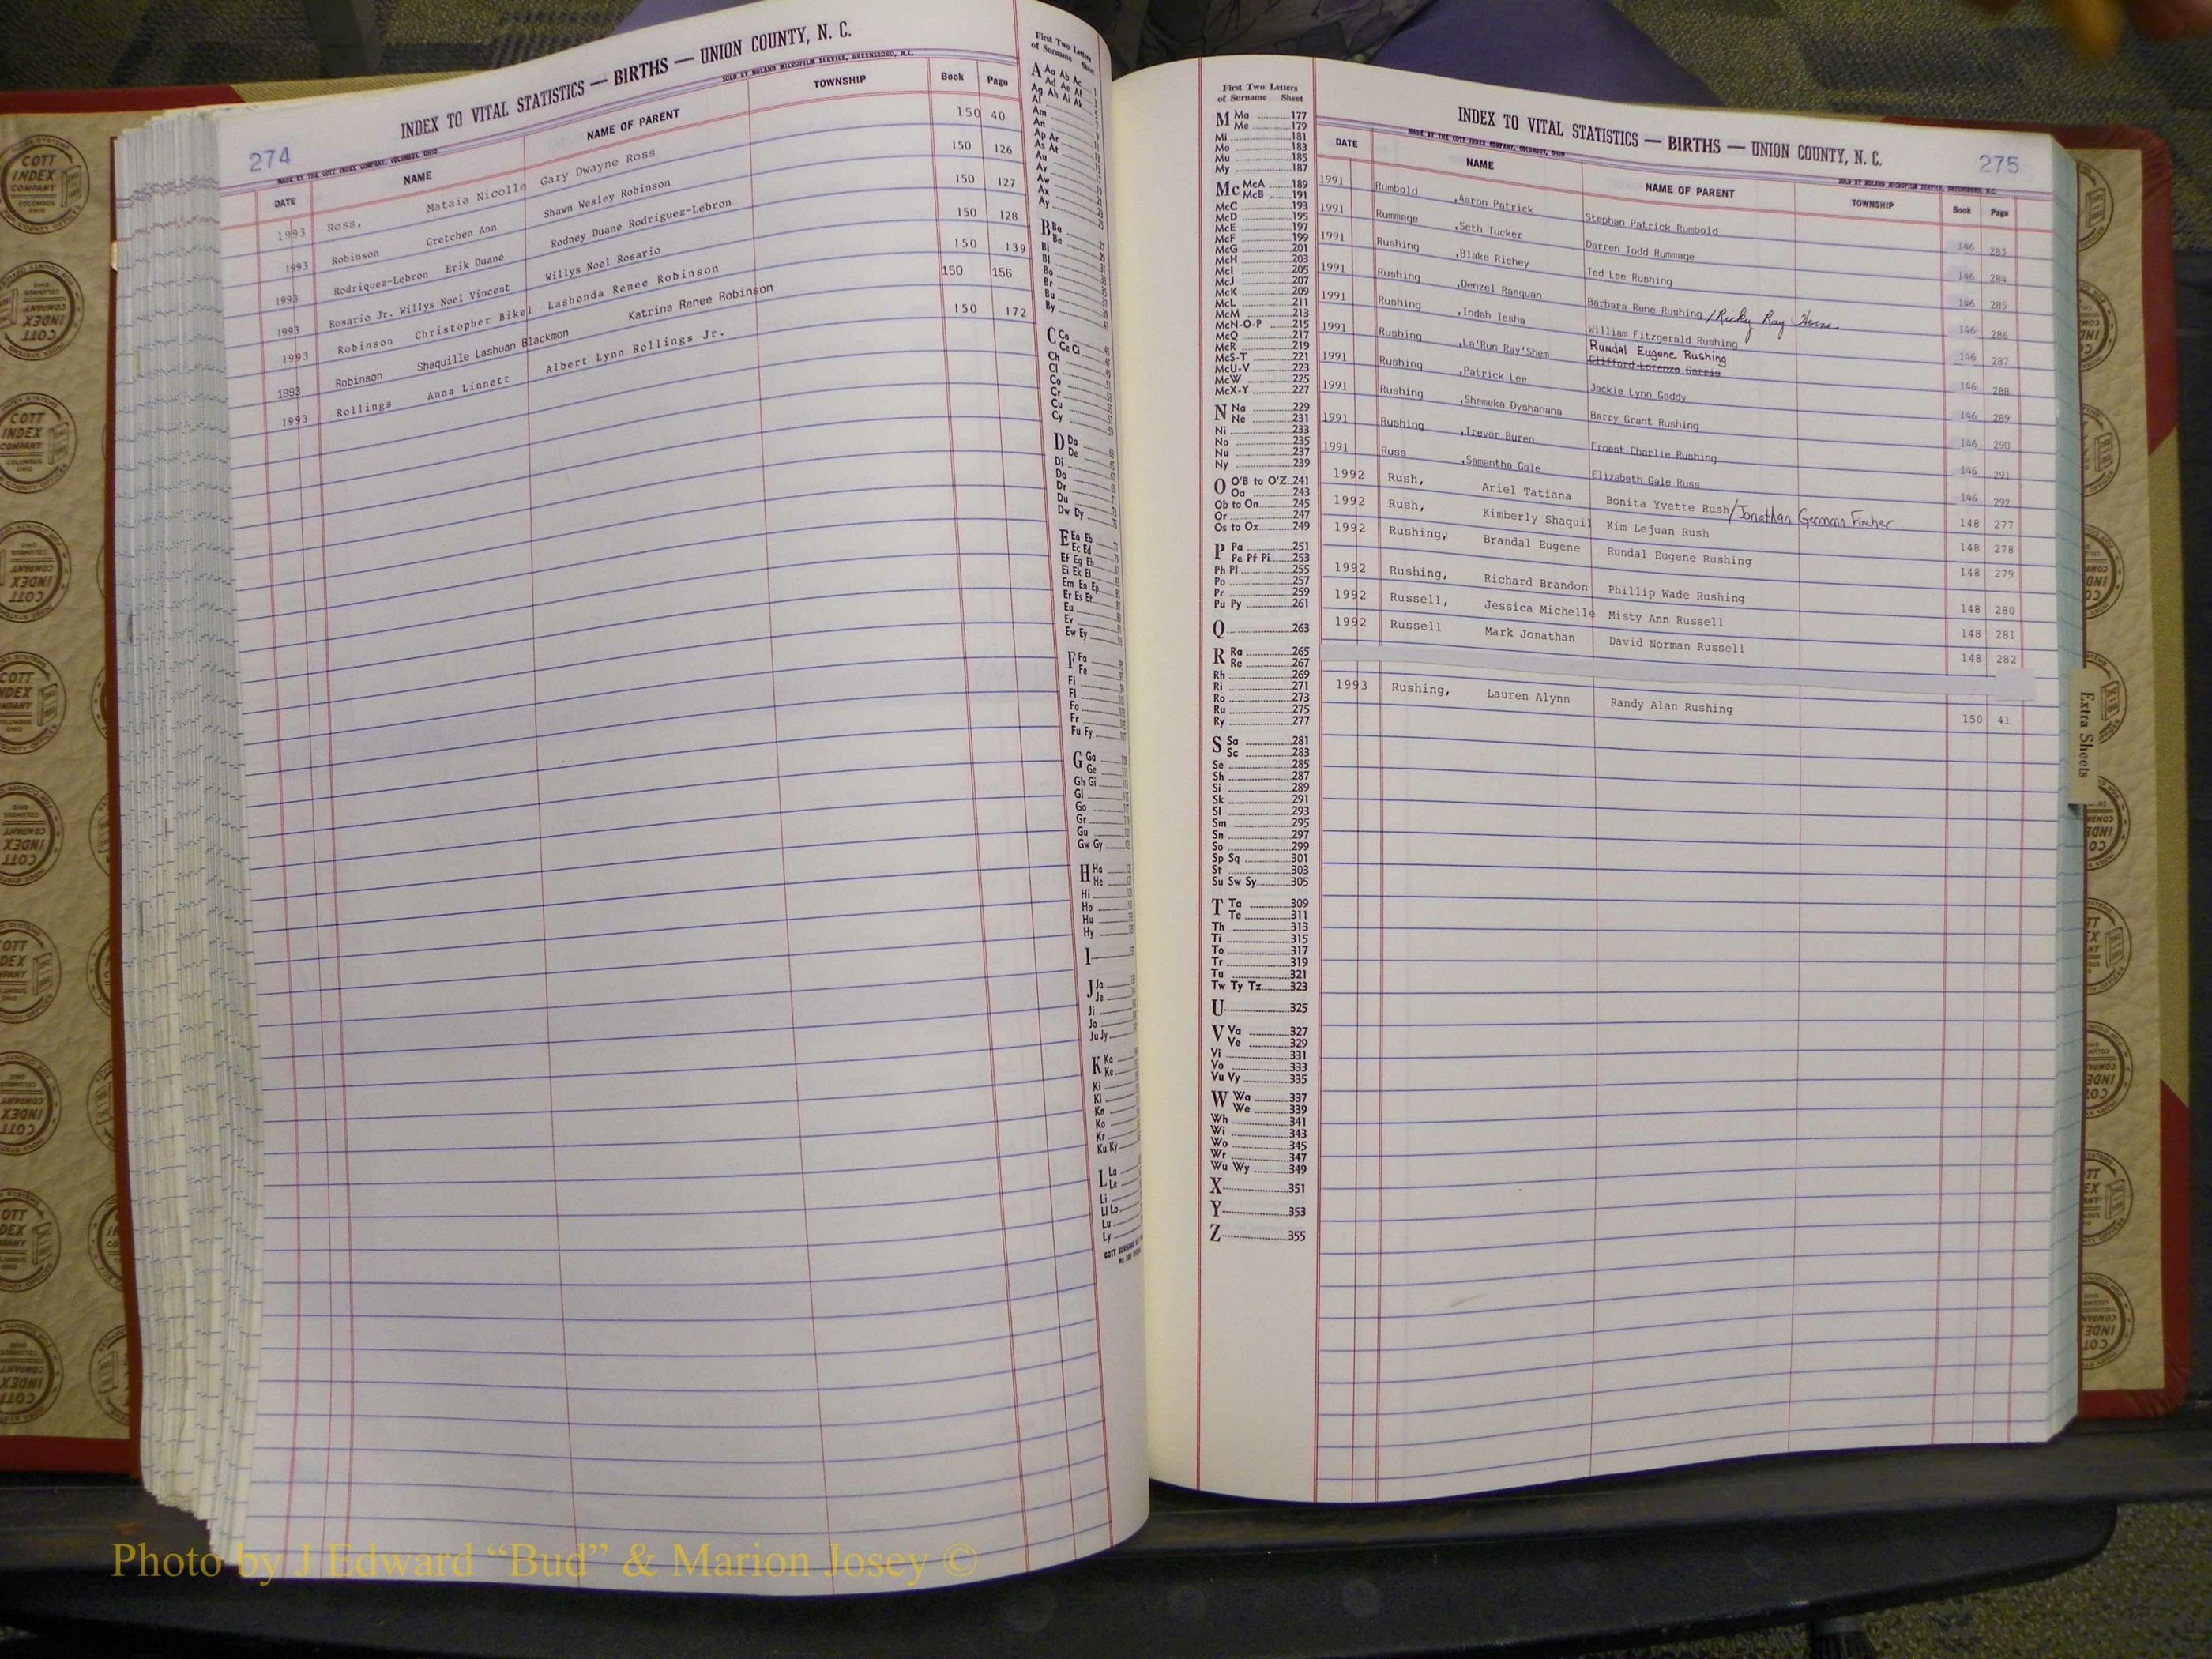 INDEX TO VITAL STATISTICS — BIRTHS — UNION COUNTY, N. C.
274
MADE BY THE COTT INDEX COMPANY, COLUMBUS, OHIO
SOLD BY NOLAND MICROFILM SERVICE, GREENSBORO, N.C.
DATE NAME NAME OF PARENT TOWNSHIP Book Page
1993 Ross, Mataia Nicolle Gary Dwayne Ross 150 40
1993 Robinson Gretchen Ann Shawn Wesley Robinson 150 126
1993 Rodriquez-Lebron Erik Duane Rodney Duane Rodriguez-Lebron 150 127
1993 Rosario Jr. Willys Noel Vincent Willys Noel Rosario 150 128
1993 Robinson Christopher Bikel Lashonda Renee Robinson 150 139
1993 Robinson Shaquille Lashuan Blackmon Katrina Renee Robinson 150 156
1993 Rollings Anna Linnett Albert Lynn Rollings Jr. 150 172
First Two Letters
of Surname Sheet
A Aa Ab Ac
Ad Ae Af
Ag Ah Ai Ak
Al
Am
An
Ap Ar
As At
Au
Av
Aw
Ax
Ay
B Ba
Be
Bi
Bl
Bo
Br
Bu
By
C Ca
Ce Ci
Ch
Cl
Co
Cr
Cu
Cy
D Da
De
Di
Do
Dr
Du
Dw Dy
E Ea Eb
Ec Ed
Ef Eg Eh
Ei Ek El
Em En Ep
Er Es Et
Eu
Ev
Ew Ey
F Fa
Fe
Fi
Fl
Fo
Fr
Fu Fy
G Ga
Ge
Gh Gi
Gl
Go
Gr
Gu
Gw Gy
H Ha
He
Hi
Ho
Hu
Hy
I
J Ja
Je
Ji
Jo
Ju Jy
K Ka
Ke
Ki
Kl
Kn
Ko
Kr
Ku Ky
L La
Le
Li
Ll Lo
Lu
Ly
First Two Letters
of Surname Sheet
M Ma 177
Me 179
Mi 181
Mo 183
Mu 185
My 187
Mc McA 189
McB 191
McC 193
McD 195
McE 197
McF 199
McG 201
McH 203
McI 205
McJ 207
McK 209
McL 211
McM 213
McN-O-P 215
McQ 217
McR 219
McS-T 221
McU-V 223
McW 225
McX-Y 227
N Na 229
Ne 231
Ni 233
No 235
Nu 237
Ny 239
O O'B to O'Z 241
Oa 243
Ob to On 245
Or 247
Os to Oz 249
P Pa 251
Pe Pf Pi 253
Ph Pl 255
Po 257
Pr 259
Pu Py 261
Q 263
R Ra 265
Re 267
Rh 269
Ri 271
Ro 273
Ru 275
Ry 277
S Sa 281
Sc 283
Se 285
Sh 287
Si 289
Sk 291
Sl 293
Sm 295
Sn 297
So 299
Sp Sq 301
St 303
Su Sw Sy 305
T Ta 309
Te 311
Th 313
Ti 315
To 317
Tr 319
Tu 321
Tw Ty Tz 323
U 325
V Va 327
Ve 329
Vi 331
Vo 333
Vu Vy 335
W Wa 337
We 339
Wh 341
Wi 343
Wo 345
Wr 347
Wu Wy 349
X 351
Y 353
Z 355
INDEX TO VITAL STATISTICS — BIRTHS — UNION COUNTY, N. C.
275
MADE BY THE COTT INDEX COMPANY, COLUMBUS, OHIO
SOLD BY NOLAND MICROFILM SERVICE, GREENSBORO, N.C.
DATE NAME NAME OF PARENT TOWNSHIP Book Page
1991 Rumbold ,Aaron Patrick Stephan Patrick Rumbold 146 283
1991 Rummage ,Seth Tucker Darren Todd Rummage 146 284
1991 Rushing ,Blake Richey Ted Lee Rushing 146 285
1991 Rushing ,Denzel Raequan Barbara Rene Rushing /Ricky Ray 146 286
1991 Rushing ,Indah Iesha William Fitzgerald Rushing 146 287
1991 Rushing ,La'Run Ray'Shem Rundal Eugene Rushing 146 288
Clifford Lorenzo Garris
1991 Rushing ,Patrick Lee Jackie Lynn Gaddy 146 289
1991 Rushing ,Shemeka Dyshanana Barry Grant Rushing 146 290
1991 Rushing ,Trevor Buren Ernest Charlie Rushing 146 291
1991 Russ ,Samantha Gale Elizabeth Gale Russ 146 292
1992 Rush, Ariel Tatiana Bonita Yvette Rush/Jonathan Germain Fincher 148 277
1992 Rush, Kimberly Shaquil Kim Lejuan Rush 148 278
1992 Rushing, Brandal Eugene Rundal Eugene Rushing 148 279
1992 Rushing, Richard Brandon Phillip Wade Rushing 148 280
1992 Russell, Jessica Michelle Misty Ann Russell 148 281
1992 Russell Mark Jonathan David Norman Russell 148 282
1993 Rushing, Lauren Alynn Randy Alan Rushing 150 41
Extra Sheets
COTT
INDEX
COMPANY
COLUMBUS
OHIO
Photo by J Edward “Bud” & Marion Josey ©